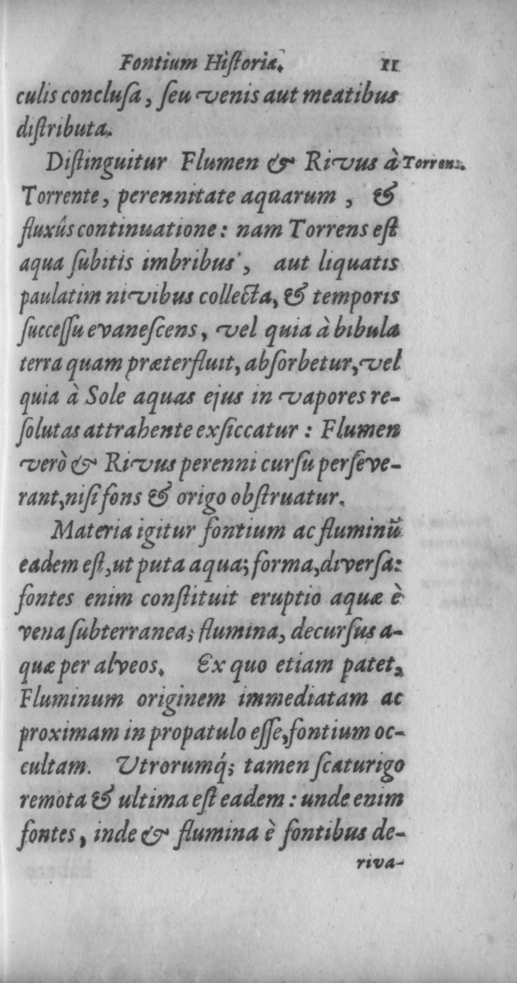 Fontium Hiſtoria. 11
culis concluſa, ſeu venis aut meatibus
diſtributa.
Diſtinguitur Flumen & Rivus à Torrens.
Torrente, perennitate aquarum, &
fluxûs continuatione: nam Torrens eſt
aqua ſubitis imbribus, aut liquatis
paulatim nivibus collecta, & temporis
ſucceſſu evaneſcens, vel quia à bibula
terra quam præterfluit, abſorbetur, vel
quia à Sole aquas ejus in vapores re-
ſolutas attrahente exſiccatur: Flumen
verò & Rivus perenni curſu perſeve-
rant, niſi fons & origo obſtruatur.
Materia igitur fontium ac fluminū
eadem eſt, ut puta aqua; forma, diverſa:
fontes enim conſtituit eruptio aquæ è
vena ſubterranea; flumina, decurſus a-
quæ per alveos. Ex quo etiam patet,
Fluminum originem immediatam ac
proximam in propatulo eſſe, fontium oc-
cultam. Utrorumq́; tamen ſcaturigo
remota & ultima eſt eadem: unde enim
fontes, inde & flumina è fontibus de-
riva-